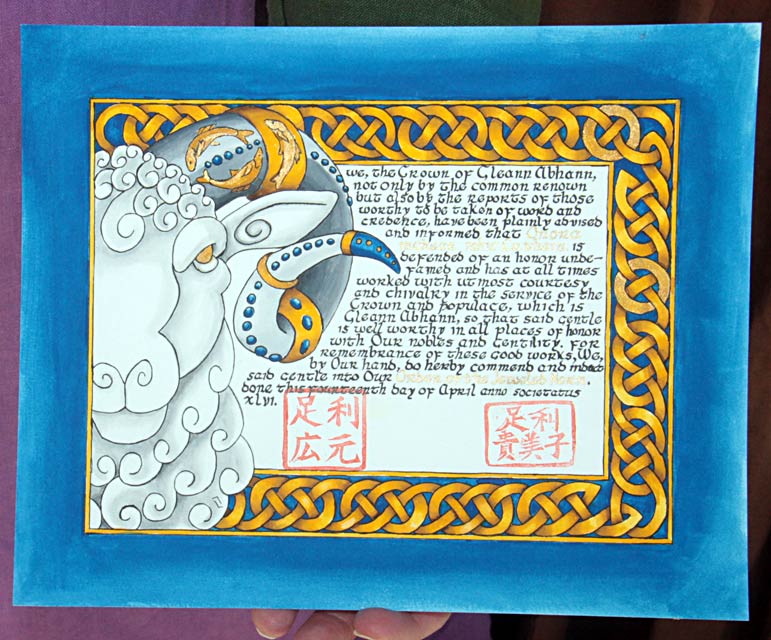 we, the Crown of Gleann Abhann,
not only by the common renown
but also by the reports of those
worthy to be taken of word and
credence, have been plainly advised
and informed that
is
defended of an honor unde-
famed and has at all times
worked with utmost courtesy
and chivalry in the service of the
Crown and Populace, which is
Gleann Abhann, so that said Gentle
is well worthy in all places of honor
with Our nobles and Gentility. For
remembrance of these good works, We,
by Our hand, do herby commend and induct
said Gentle into Our Order of the Jeweled Horn.
Done this fourteenth day of April anno societatus
XLVI.
足利
広元
足利
貴美子